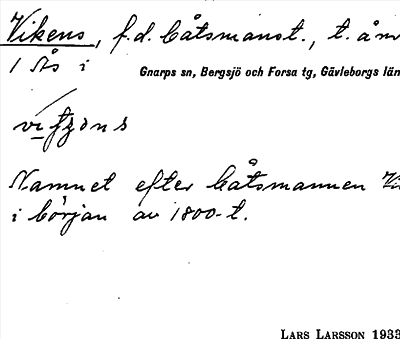 Vikens, f.d. båtsmanst., t. åm
1 Ås i
Gnarps sn, Bergsjö och Forsa tg, Gävleborgs län
Namnet efter båtsmannen Vi
i början av 1800-t.
LARS LARSSON 1933